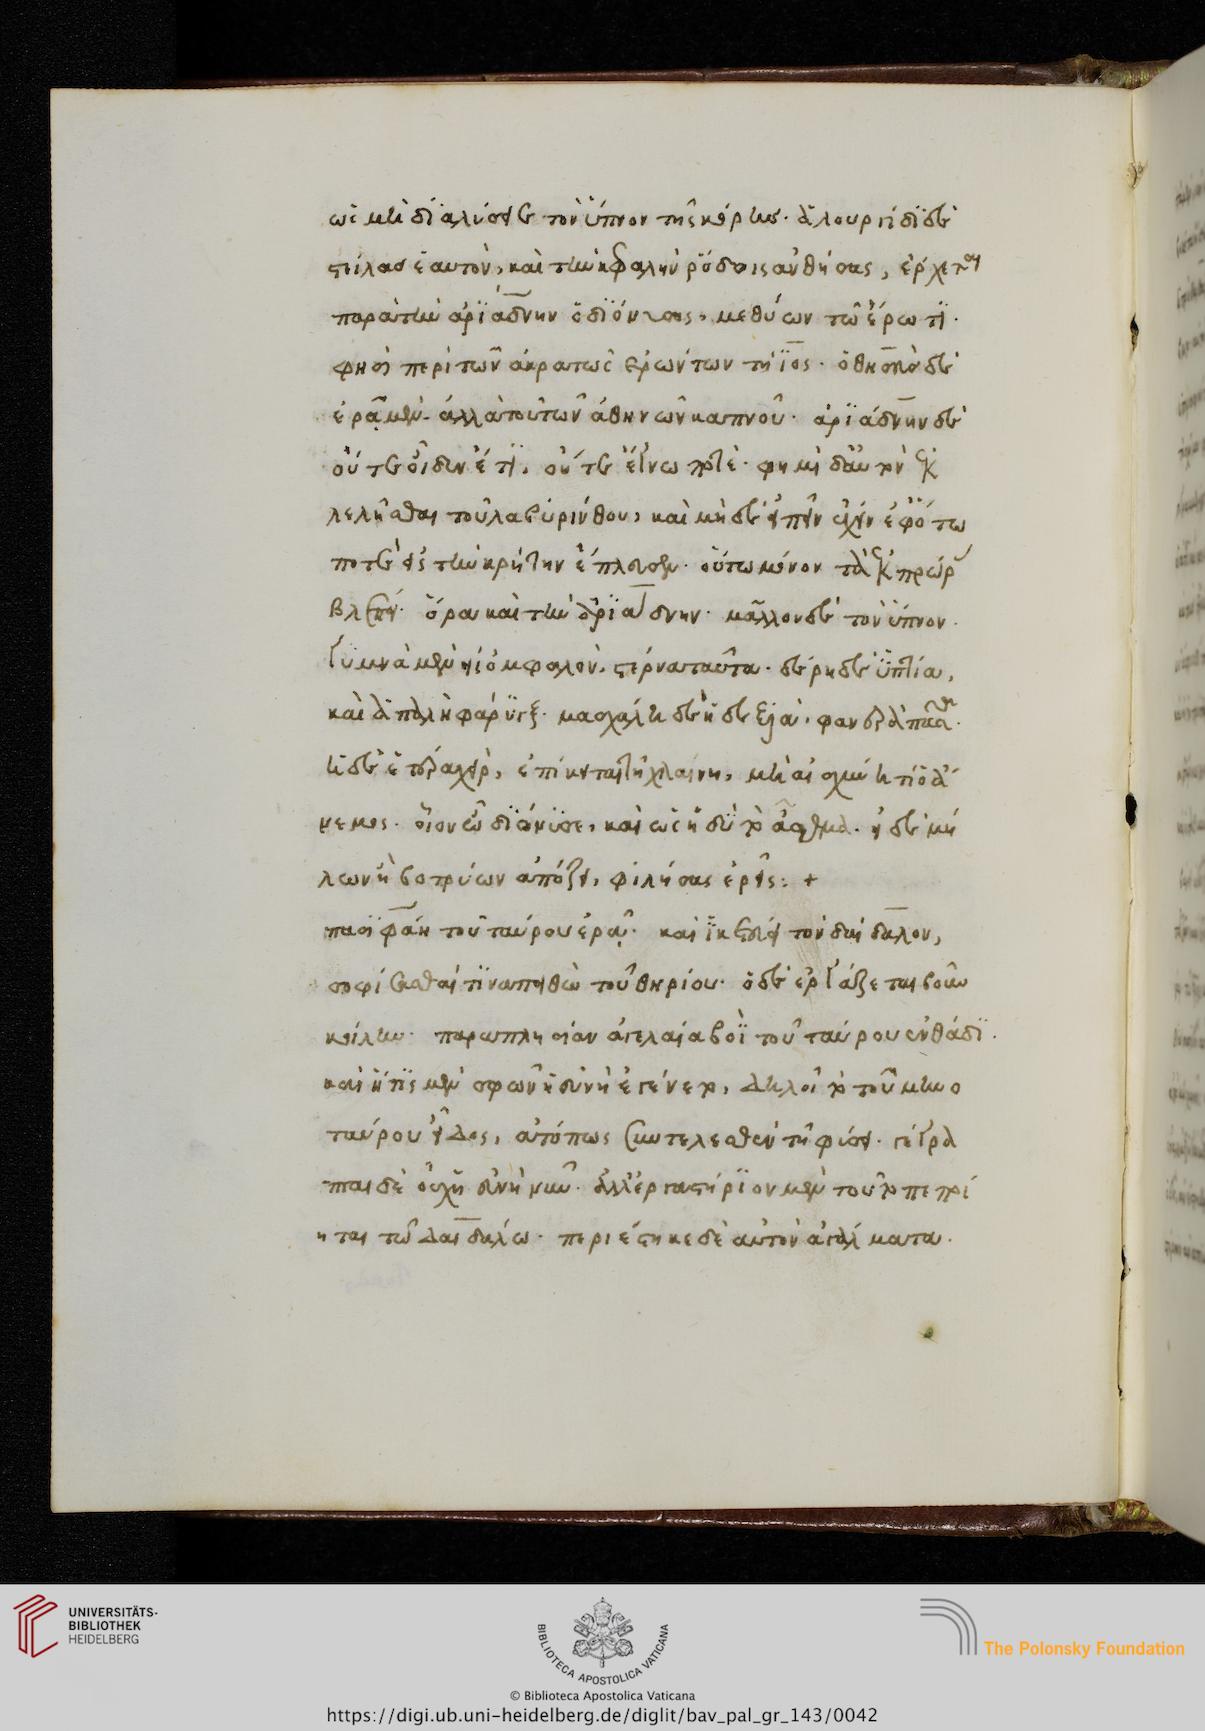 ὡς μὴ διαλύσειε τὸν ὕπνον τῆς κόρης. ἁλουργίδι δὲ
στείλας ἑαυτὸν, καὶ τὴν κεφαλὴν ῥόδοις ἀνθήσας, ἔρχεται
παρὰ τὴν ἀριάδνην ὁ διόνυσος, μεθύων τῶ ἔρωτι.
φησὶ περὶ τῶν ἀκρατῶς ἐρώντων τήϊος. ὁ θησεὺς δὲ
ἐρᾷ μὲν. ἀλλὰ τοῦ τῶν ἀθηνῶν καπνοῦ. ἀριάδνην δὲ
οὔτε οἶδεν ἔτι, οὔτε ἔγνω ποτὲ. φημὶ δ' αὐτὸν ἐκ
λελῆσθαι τοῦ λαβυρίνθου, καὶ μηδὲ εἰπεῖν ἔχειν ἐφ' ὅτω
ποτὲ εἰς τὴν κρήτην ἔπλευσεν. οὕτω μόνον τὰ ἐκ πρώρας
βλέπει. ὅρα καὶ τὴν ἀριάδνην. μᾶλλον δὲ τὸν ὕπνον.
γυμνὰ μὲν εἰς ὀμφαλὸν, στέρνα ταῦτα. δέρη δὲ ὑπτία,
καὶ ἁπαλὴ φάρυγξ. μασχάλη δὲ ἡ δεξιὰ. φανερὰ πᾶσα.
ἡ δὲ ἑτέρα χεὶρ, ἐπίκειται τῆ χλαίνη, μὴ αἰσχύνη τι ὁ ἄ
νεμος. οἷον ὦ διόνυσε, καὶ ὡς ἡδὺ τὸ ἆσθμα. εἰ δὲ μή
λων ἢ βοτρύων ἀπόζει, φιλήσας ἐρεῖς: +
πασιφάη τοῦ ταύρου ἐρᾷ. καὶ ἱκετεύει τὸν δαίδαλον,
σοφίσασθαί τινα πειθὼ τοῦ θηρίου. ὁ δὲ ἐργάζεται βοῦν
κοίλην. παραπλησίαν ἀγελαία βοῒ τοῦ ταύρου ἐνθάδι.
καὶ ἥτις μὲν σφῶν ἡ εὐνὴ ἐγένετο, δηλοῖ τὸ τοῦ μινω
ταύρου εἶδος, ἀτόπως συντελεσθὲν τῆ φύσει. γέγρα
πται δὲ οὐχ ἡ εὐνὴ νῦν. ἀλλ' ἐργαστήριον μὲν τοῦτο πεποί
ηται τῶ δαιδάλω. περιέστηκε δὲ αὐτὸν ἀγάλματα.
UNIVERSITÄTS-
BIBLIOTHEK
HEIDELBERG
BIBLIOTECA APOSTOLICA VATICANA
The Polonsky Foundation
© Biblioteca Apostolica Vaticana
https://digi.ub.uni-heidelberg.de/diglit/bav_pal_gr_143/0042